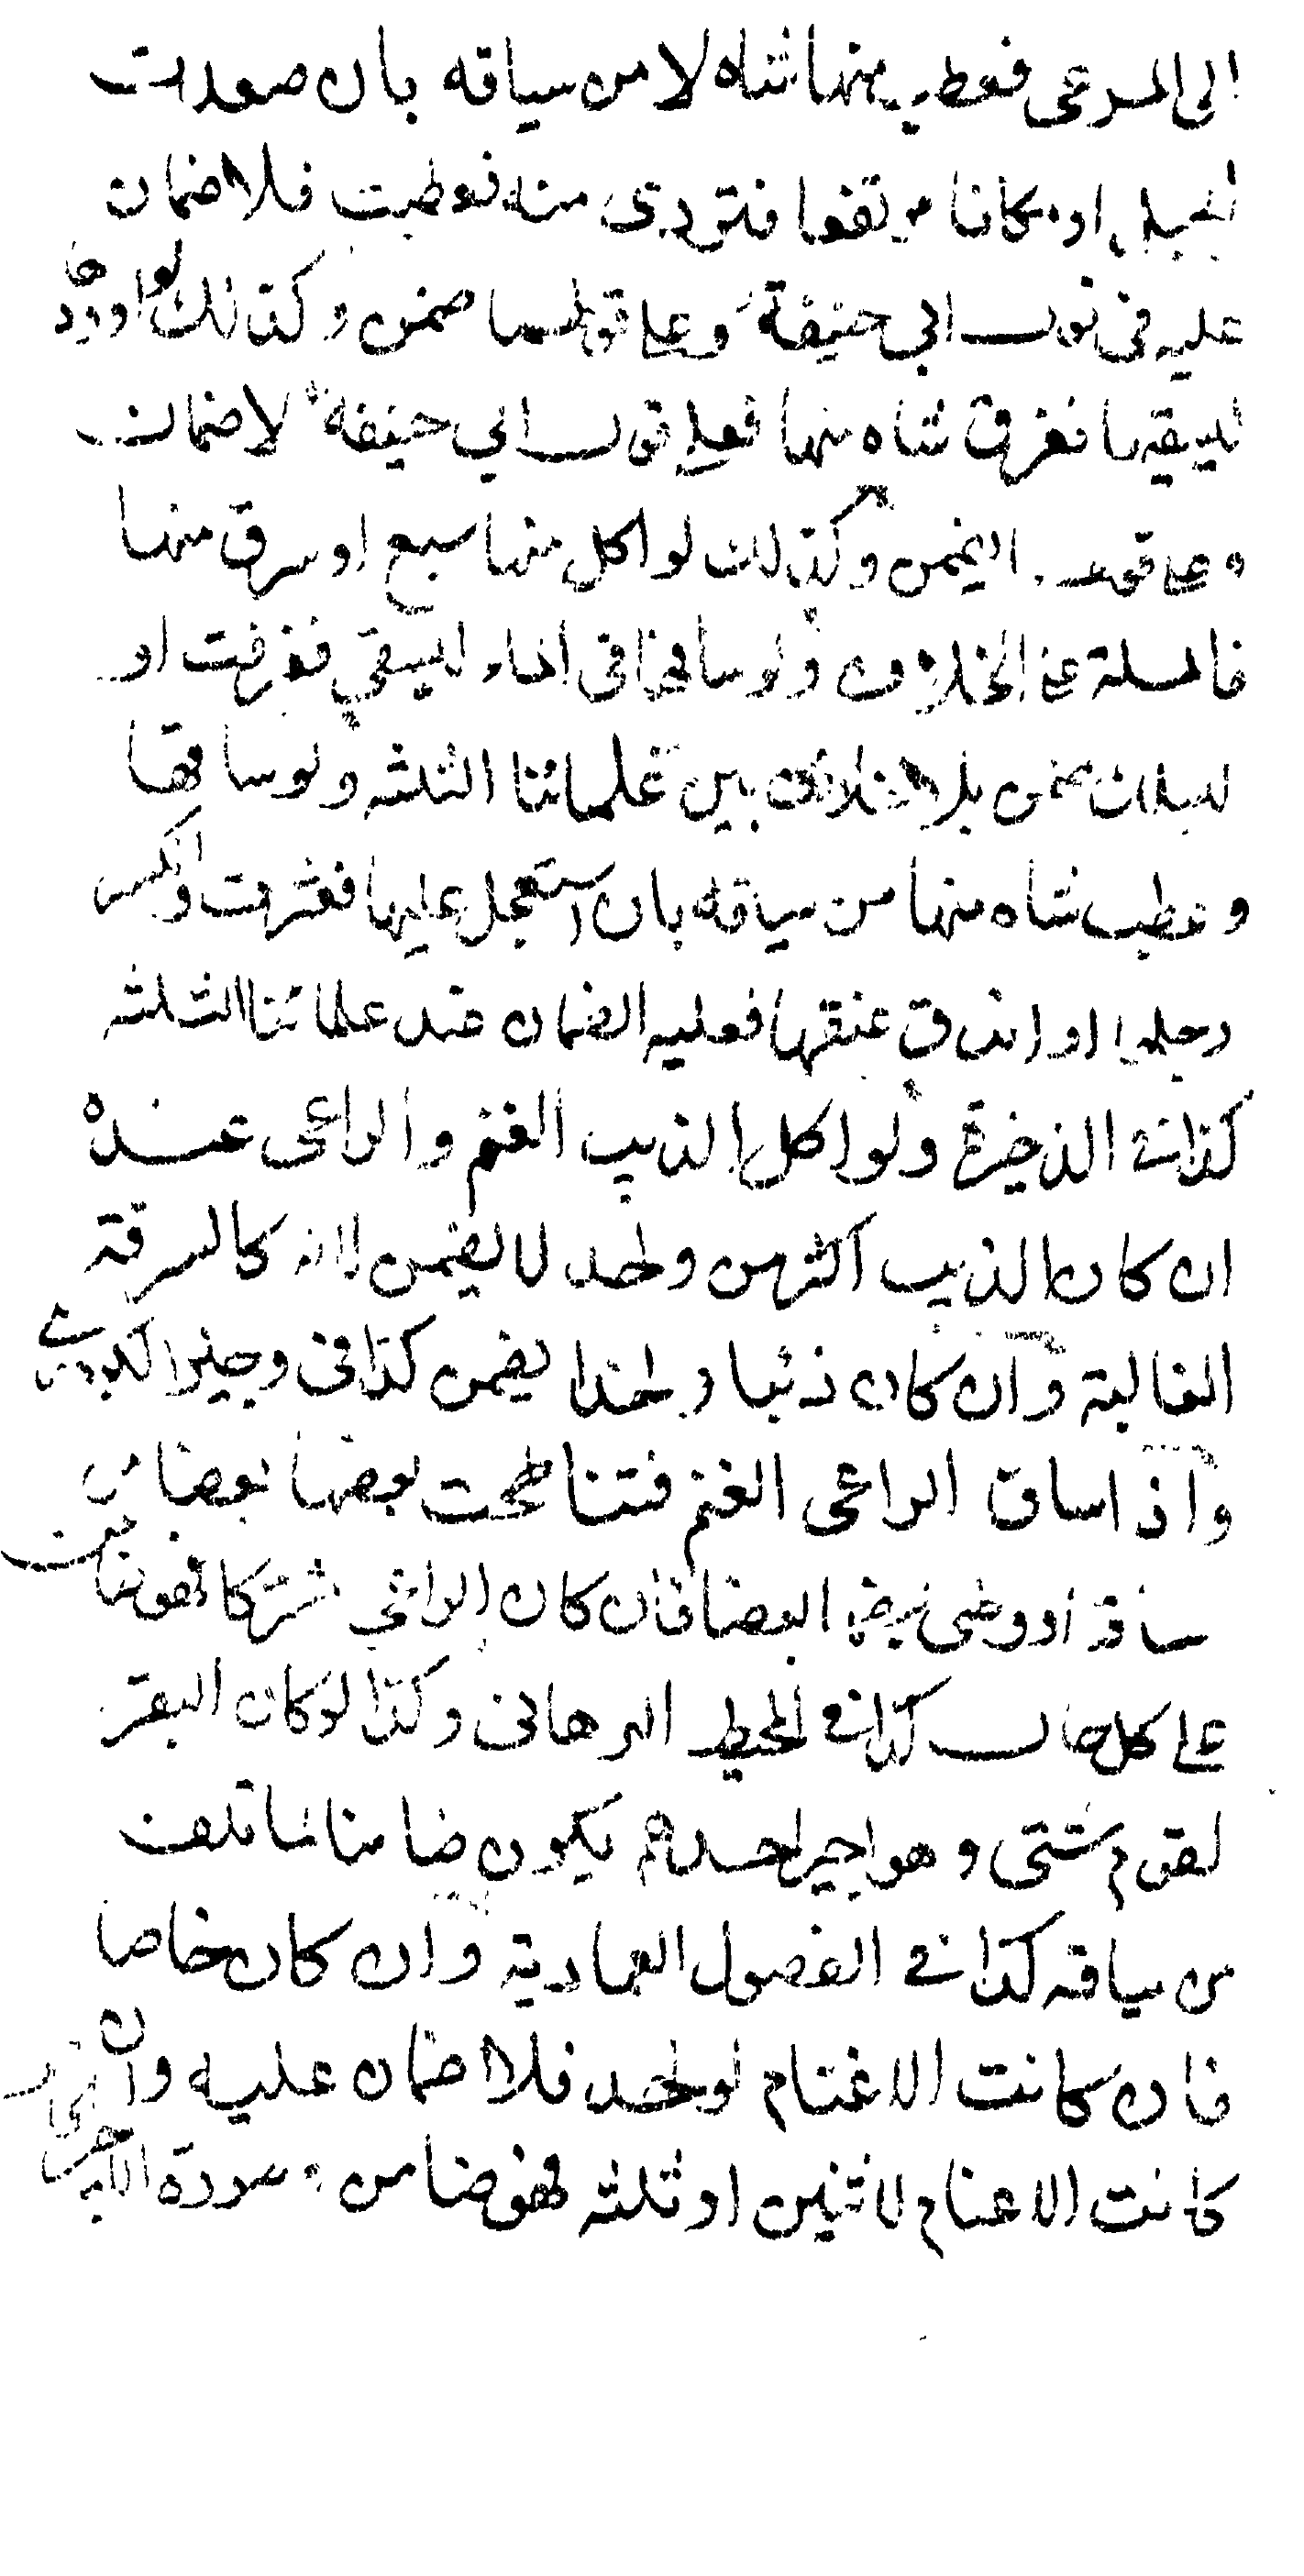 الى المرعى فعطب منها شاه لا من سياقه بان صعدت
الجبل او مكانا مرتفعا فتردى منه فعطبت فلا ضمان
عليه فى قول ابي حنيفة وعلى قولهما ضمن وكذالك لو اوردها
ليسقيها فغرق شاه منها فعلى قول ابي حنيفة لا ضمان
وعلى قولهما يضمن وكذلك لو اكل منها سبع او سرق منها
فالمسلة على الخلاف ولو ساقها فى الماء ليسقي فغرقت او
ضمن بلا خلاف بين علمائنا الثلثه ولو ساقها
وعطب شاه منها من سياقه بان استعجل عليها فعثرت وانكسر
رجلها او اندق عنقها فعليه الضمان عند علمائنا الثلثه
كذا في الذخيرة ولو اكل الذيب الغنم والراعى عنده
ان كان الذيب اكثر من واحد لا يضمن لانه كالسرقة
الغالبة وان كان ذئبا واحدا يضمن كذا فى وجيز الكردري
واذا ساق الراعى الغنم فتناطحت بعضها بعضا من
سياقه او وطى بعضها بعضا فان كان الراعي مشتركا فهو ضامن
على كل حال كذا في المحيط البرهانى وكذا لو كان البقر
لقوم شتى وهو اجير احدهم يكون ضامنا لما تلف
من سياقه كذا في الفصول العمادية وان كان خاصا
فان كانت الاغنام لواحد فلا ضمان عليه وان
كانت الاغنام لاثنين او ثلثه فهو ضامن